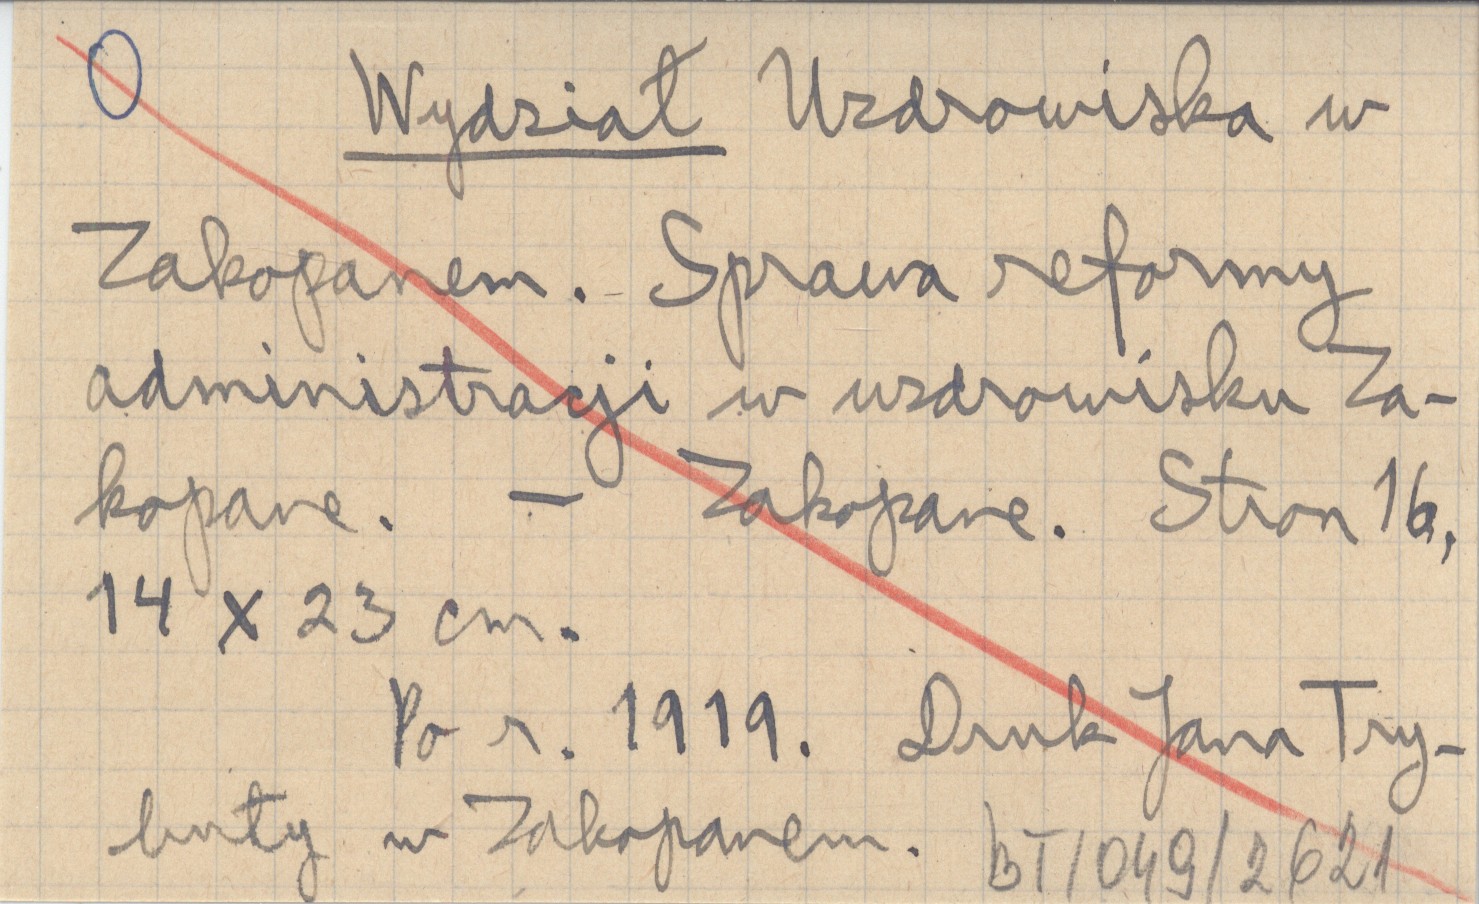 Wydział Uzdrowiska w
Zakopanem. - Sprawa reformy
administracji w uzdrowisku Za-
kopane. — Zakopane. Stron 16,
14 x 23 cm.
Po r. 1919. Druk Jana Try-
buty w Zakopanem. BT/049/2621